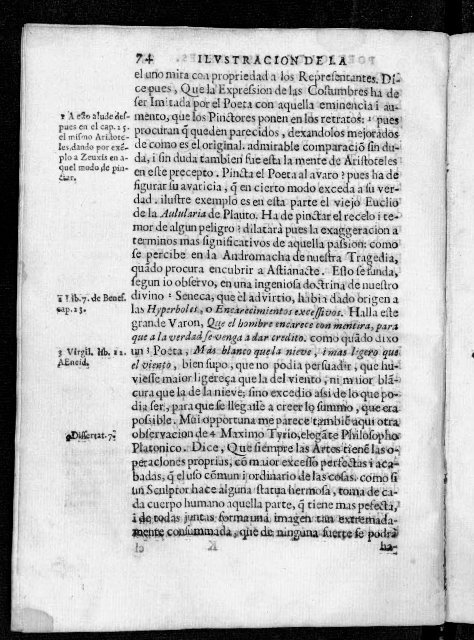 74 ILVSTRACION DE LA
el uno mira con propriedad a los Representantes. Di-
ce pues, Que la Expression de las Costumbres ha de
ser Imitada por el Poeta con aquella eminencia i au-
mento, que los Pinctores ponen en los retratos: ¹ pues
procuran q̃ queden parecidos, dexandolos mejorados
de como es el original. admirable comparaciō sin du-
da, i sin duda tambien fue esta la mente de Aristoteles
en este precepto. Pincta el Poeta al avaro? pues ha de
figurar su avaricia, q̃ en cierto modo exceda a su ver-
dad. ilustre exemplo es en esta parte el viejo Euclio
de la Aulularia de Plauto. Ha de pinctar el recelo i te-
mor de algun peligro? dilatarà pues la exaggeracion a
terminos mas significativos de aquella passion: como
se percibe en la Andromacha de nuestra Tragedia,
quādo procura encubrir a Astianacte. Esto se funda,
segun io observo, en una ingeniosa doctrina de nuestro
divino ² Seneca, que el advirtio, habia dado origen a
las Hyperboles, o Encarecimientos excessivos. Halla este
grande Varon, Que el hombre encarece con mentira, para
que a la verdad se venga a dar credito. como quādo dixo
un ³ Poeta, Mas blanco que la nieve, i mas ligero que
el viento, bien supo, que no podia persuadir, que hu-
viesse maior ligereça que la del viento, ni maior blā-
cura que la de la nieve; sino excedio assi de lo que po-
dia ser, para que se llegasse a creer lo summo, que era
possible. Mui opportuna me parece tambiē aqui otra
observacion de 4 Maximo Tyrio, elogāte Philosopho
Platonico. Dice, Que siempre las Artes tienē las o-
peraciones proprias, cō maior excesso perfectas i aca-
badas, q̃ el uso cōmun i ordinario de las cosas. como si
un Sculptor hace alguna statua hermosa, toma de ca-
da cuerpo humano aquella parte, q̃ tiene mas pefecta,
i de todas juntas forma una imagen tan extremada-
mente consummada, que de ninguna suerte se podrà
K
ha-
1 A esto alude des-
pues en el cap. 15.
el mismo Aristote-
les. dando por exē-
plo a Zeuxis en a-
quel modo de pin-
ctar.
2 Lib. 7. de Benef.
cap. 23.
3 Virgil. lib. 12.
AEneid.
4 Dissertat. 7.